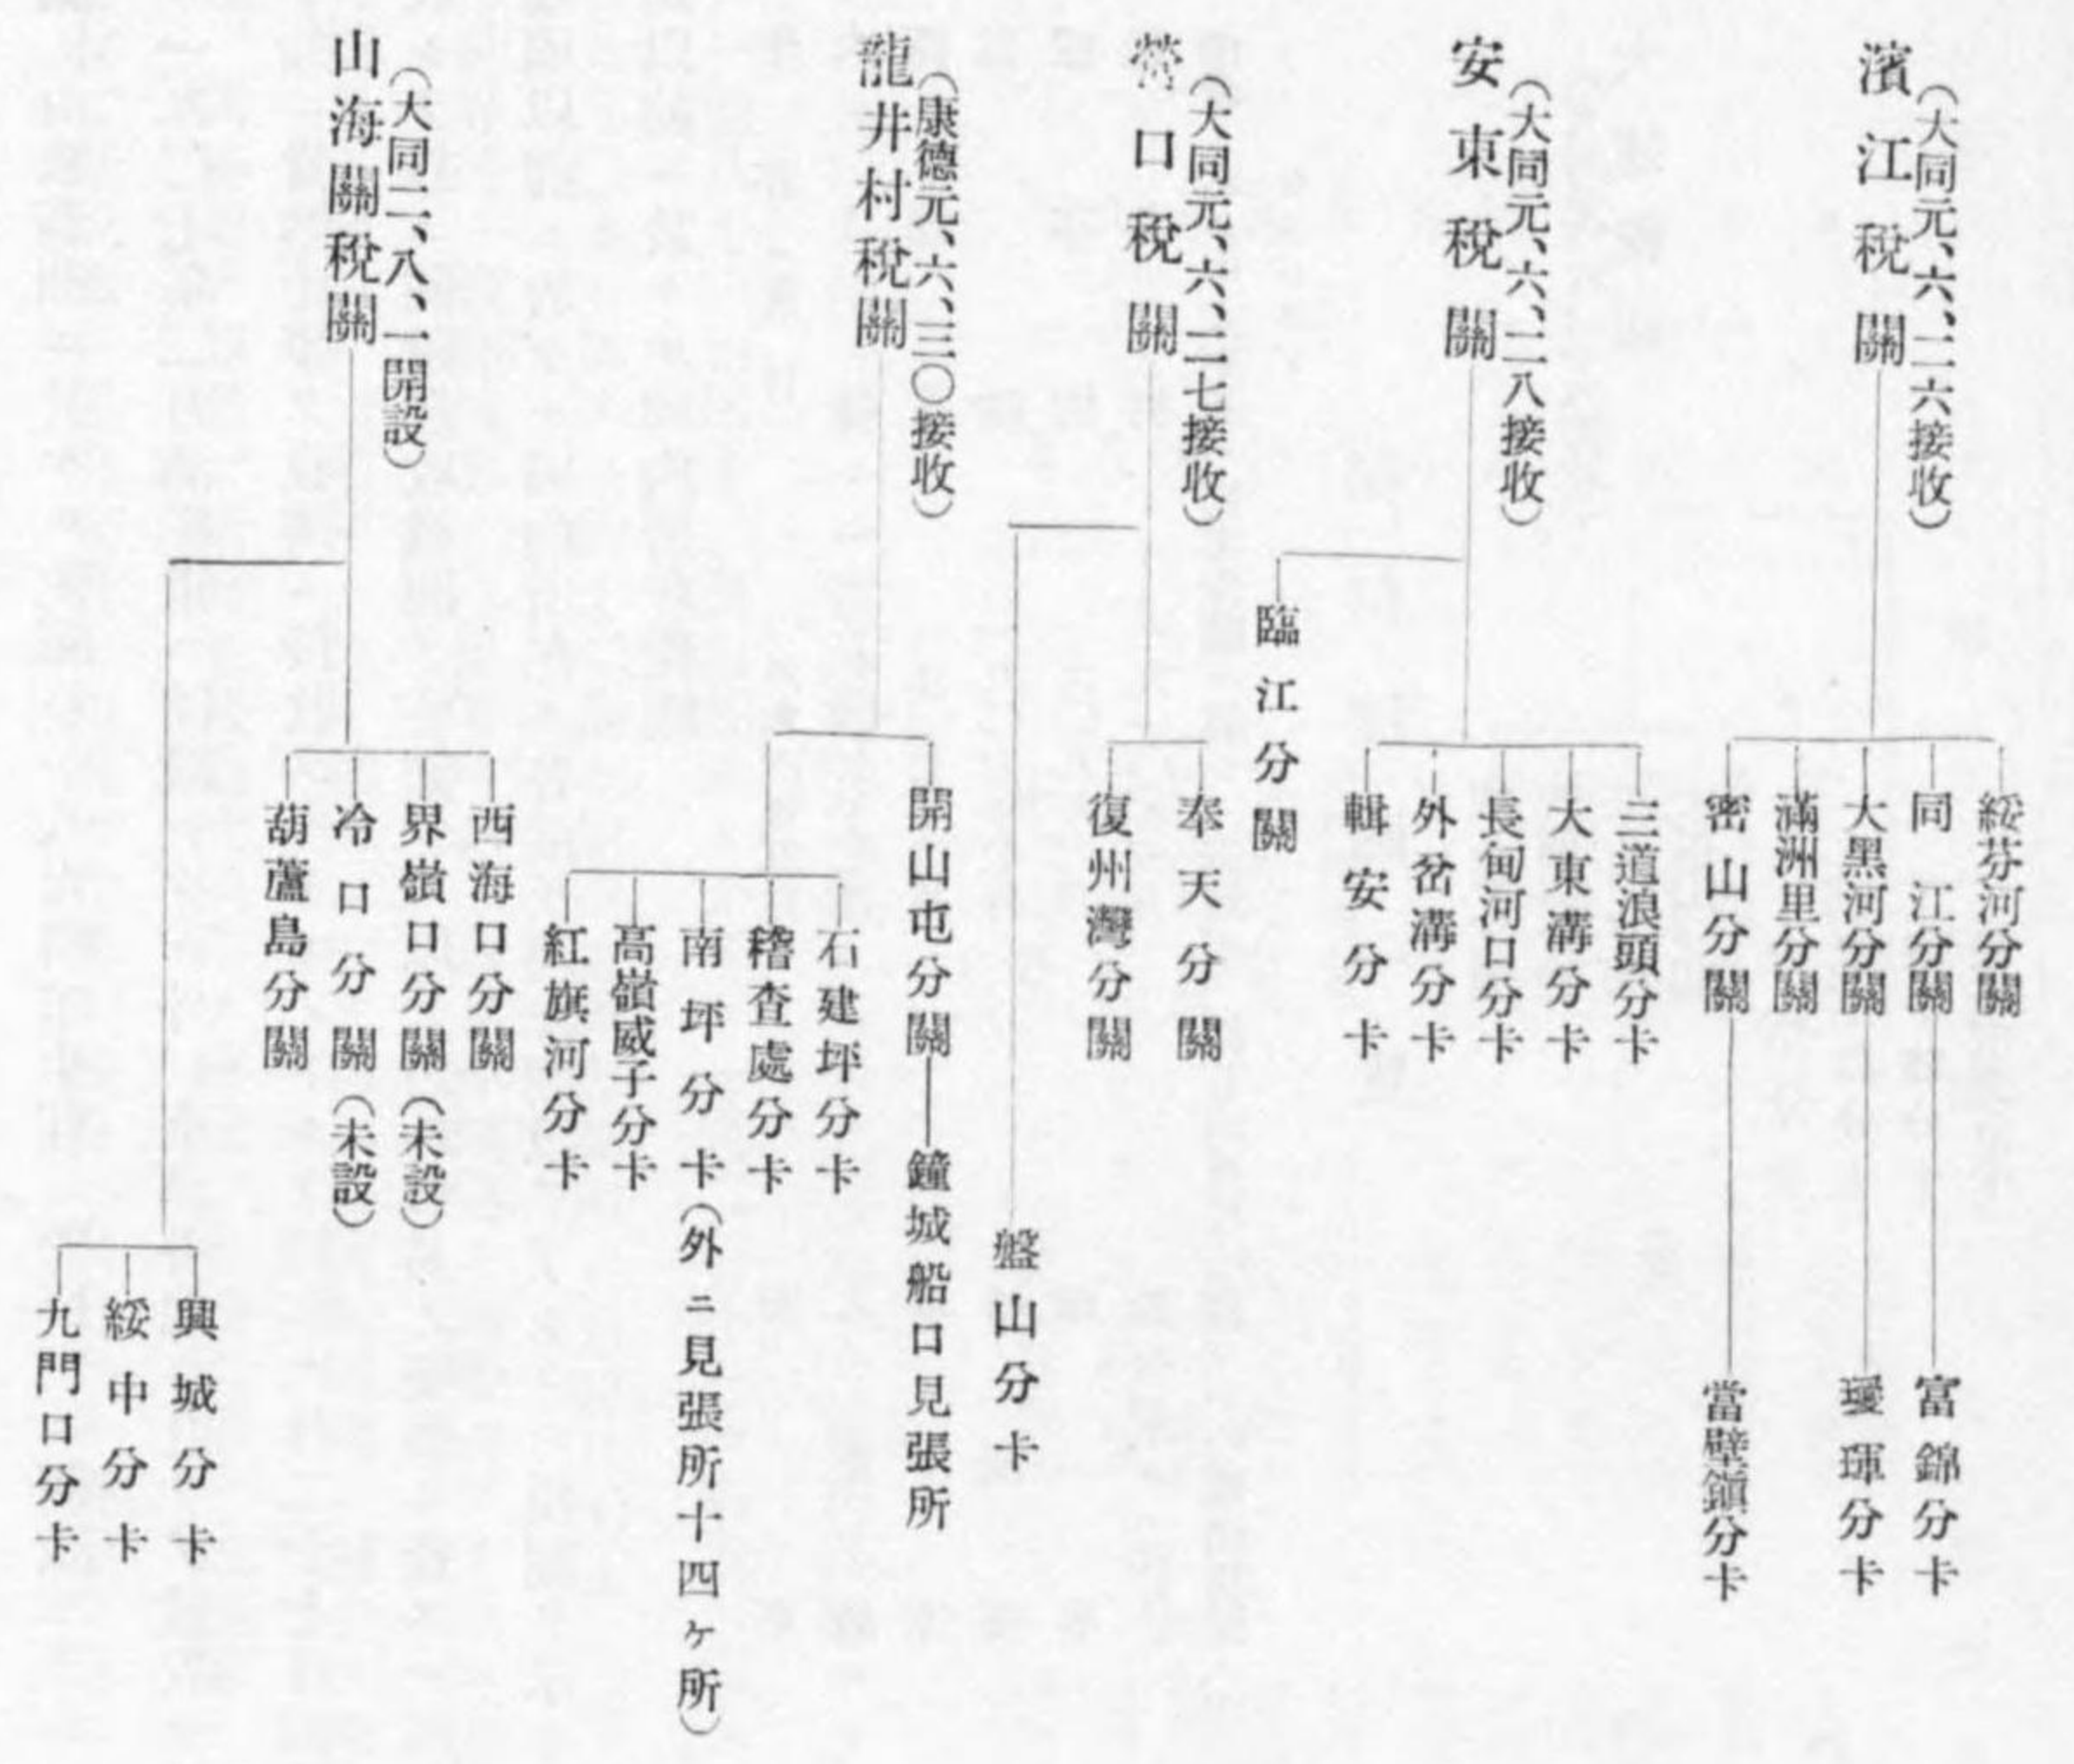 濱江稅關
(大同元、六、二六接收)
綏芬河分關
同江分關
富錦分卡
大黑河分關
璦琿分卡
滿洲里分關
密山分關
當壁鎭分卡
安東稅關
(大同元、六、二八接收)
三道浪頭分卡
大東溝分卡
長甸河口分卡
外岔溝分卡
輯安分卡
臨江分關
營口稅關
(大同元、六、二七接收)
奉天分關
復州灣分關
盤山分卡
龍井村稅關
(康德元、六、三〇接收)
開山屯分關
鐘城船口見張所
石建坪分卡
稽查處分卡
南坪分卡(外ニ見張所十四ヶ所)
高嶺威子分卡
紅旗河分卡
山海關稅關
(大同二、八、一開設)
西海口分關
界嶺口分關(未設)
冷口分關(未設)
葫蘆島分關
興城分卡
綏中分卡
九門口分卡